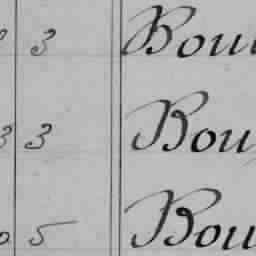 3 Bou
3 3 Bou
0 5 Bou